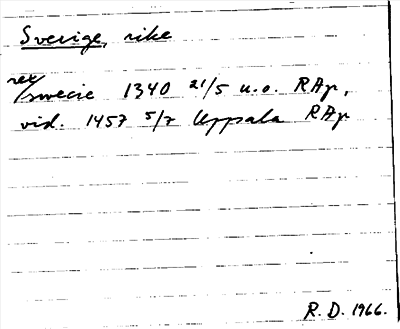 Sverige, rike
rex
swecie 1340 21/5 u.o. RAp,
vid. 1457 5/7 Uppsala RAp
R.D. 1966.